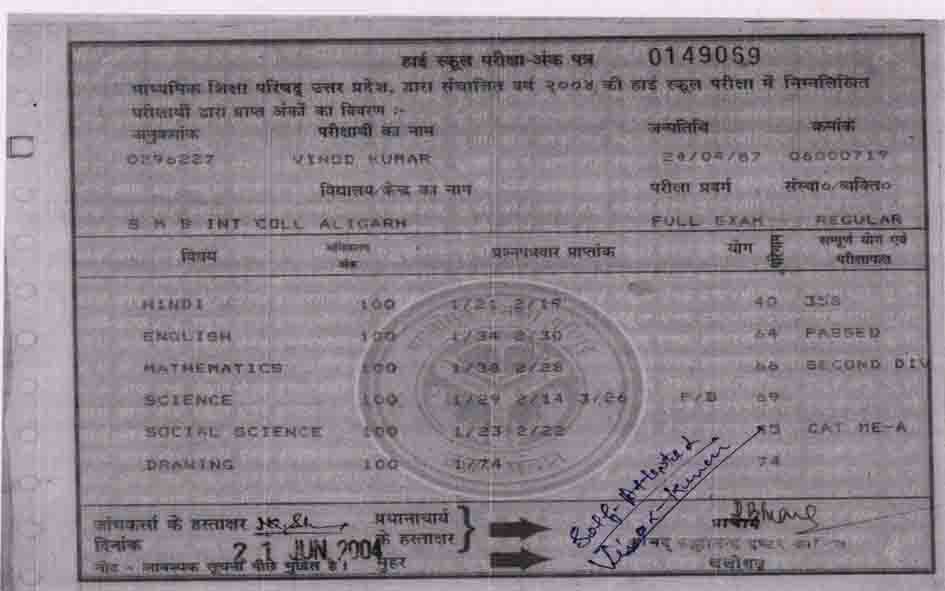 हाई स्कूल परीक्षा-अंक पत्र 0149059
माध्यमिक शिक्षा परिषद् उत्तर प्रदेश, द्वारा संचालित वर्ष २००४ की हाई स्कूल परीक्षा में निम्नलिखित
परीक्षार्थी द्वारा प्राप्त अंकों का विवरण :-
अनुक्रमांक परीक्षार्थी का नाम जन्मतिथि क्रमांक
0296227 VINOD KUMAR /04/87 06000719
विद्यालय/केन्द्र का नाम परीक्षा प्रवर्ग संस्था०/व्यक्ति०
S M B INT COLL ALIGARH FULL EXAM REGULAR
विषय अधिकतम अंक प्रश्नपत्रवार प्राप्तांक योग परिणाम सम्पूर्ण योग एवं परीक्षाफल
HINDI 100 1/21 2/19 40 358
ENGLISH 100 1/34 2/30 64 PASSED
MATHEMATICS 100 1/38 2/28 66 SECOND DIV
SCIENCE 100 1/29 2/14 3/26 P/D 69
SOCIAL SCIENCE 100 1/23 2/22 45 CAT ME-A
DRAWING 100 1/74 74
Self-Attested
Vinod Kumar
जांचकर्ता के हस्ताक्षर प्रधानाचार्य
के हस्ताक्षर प्राचार्य
दिनांक 21 JUN 2004
नोट - आवश्यक सूचना पीछे मुद्रित है। मुहर अलीगढ़